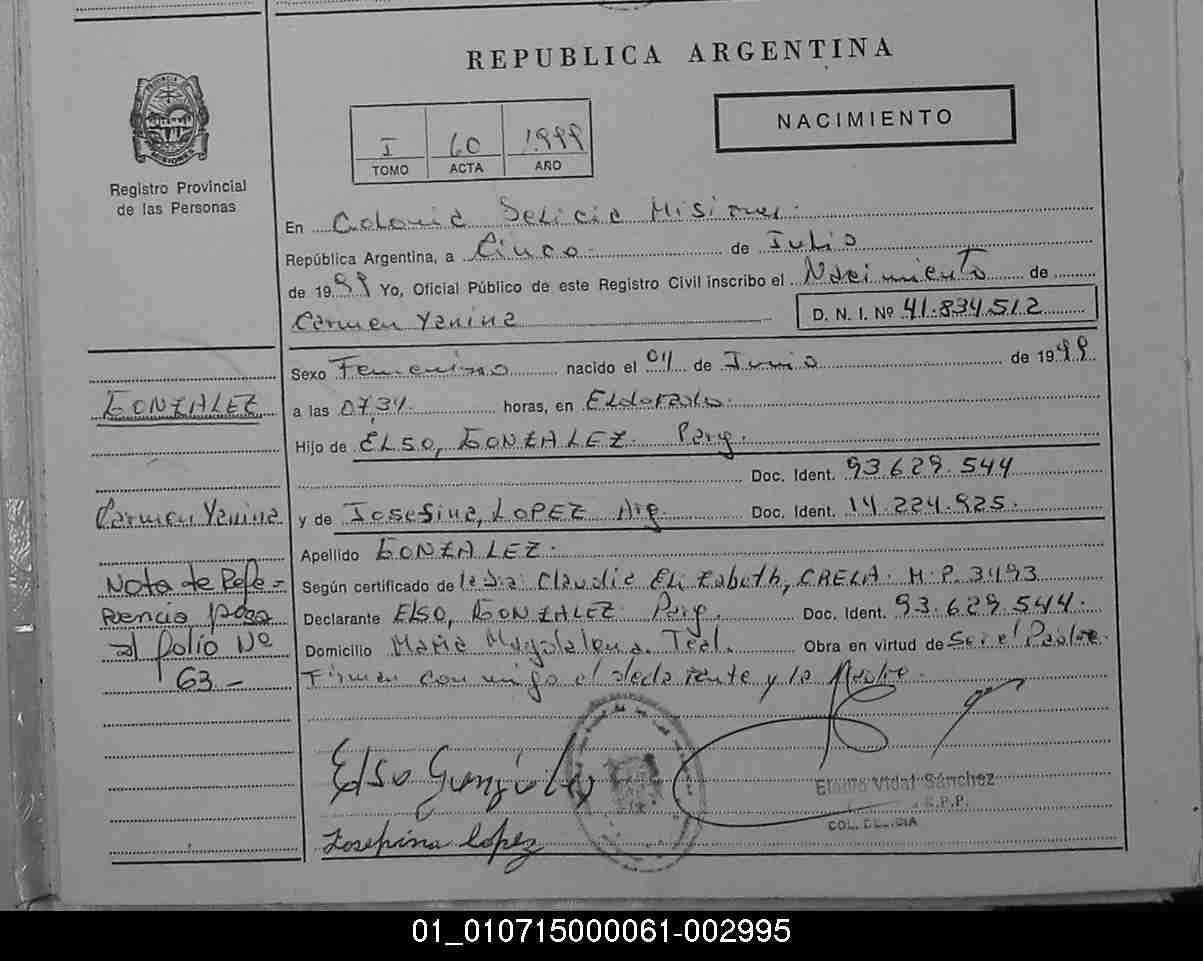 REPUBLICA ARGENTINA
PROVINCIA
MISIONES
Registro Provincial
de las Personas
I 60 1.999
TOMO ACTA AÑO
NACIMIENTO
En Colonia Delicia Misiones.
República Argentina, a Cinco de Julio
de 1999 Yo, Oficial Público de este Registro Civil inscribo el Nacimiento de
Carmen Yanina D. N. I. Nº 41.834.512
Sexo Femenino nacido el 04 de Junio de 1999
GONZALEZ
a las 0734 horas, en Eldorado.
Hijo de ELSO, GONZALEZ. Parg.
Doc. Ident. 93.629.544
Carmen Yanina
y de Josefina, LOPEZ Arg. Doc. Ident. 14.224.925.
Apellido GONZALEZ.
Nota de Refe=
rencia pasa
al folio Nº
63-
Según certificado de la Dra: Claudia Elizabeth, CRELA. M.P. 3493
Declarante ELSO, GONZALEZ Parg. Doc. Ident. 93.629.544.
Domicilio Maria Magdalena. Obra en virtud de Ser el Padre.
Firman con migo el declarante y la Madre.
Elso González
Josefina Lopez
Eladio Vidal Sánchez
R.P.P.
COL. DELICIA
01_010715000061-002995